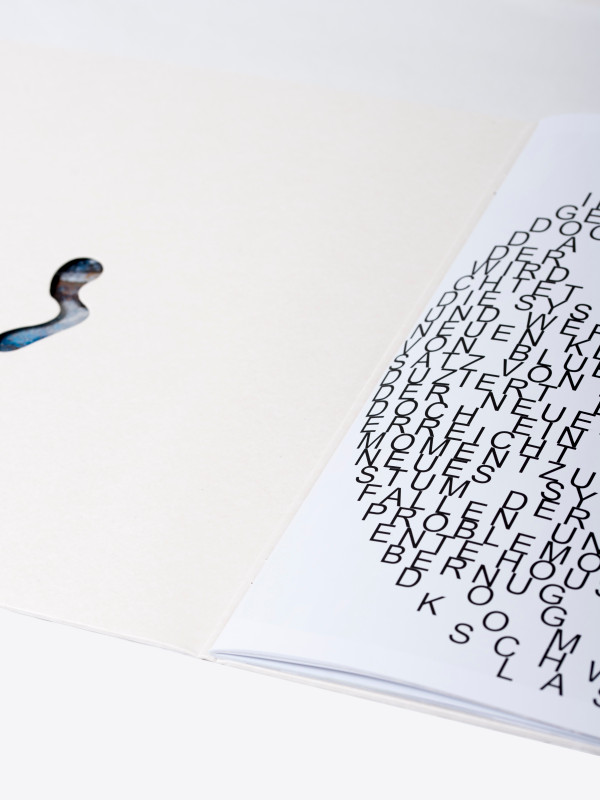 GE
DOC
D A
DER
WIRD
CHTET
DIE SYS
UND WER
NEUEN KL
VON BLUE
SATZ VON
DUZTERT
DER NEUE
DOCH EIN
ERREICHT
MOMENT ZU
NEUES SY
STUM DER
FALLEN UN
PROBLEMO
ENTEHOUS
BERNUG
D O G
K O M W
S C H
L A S